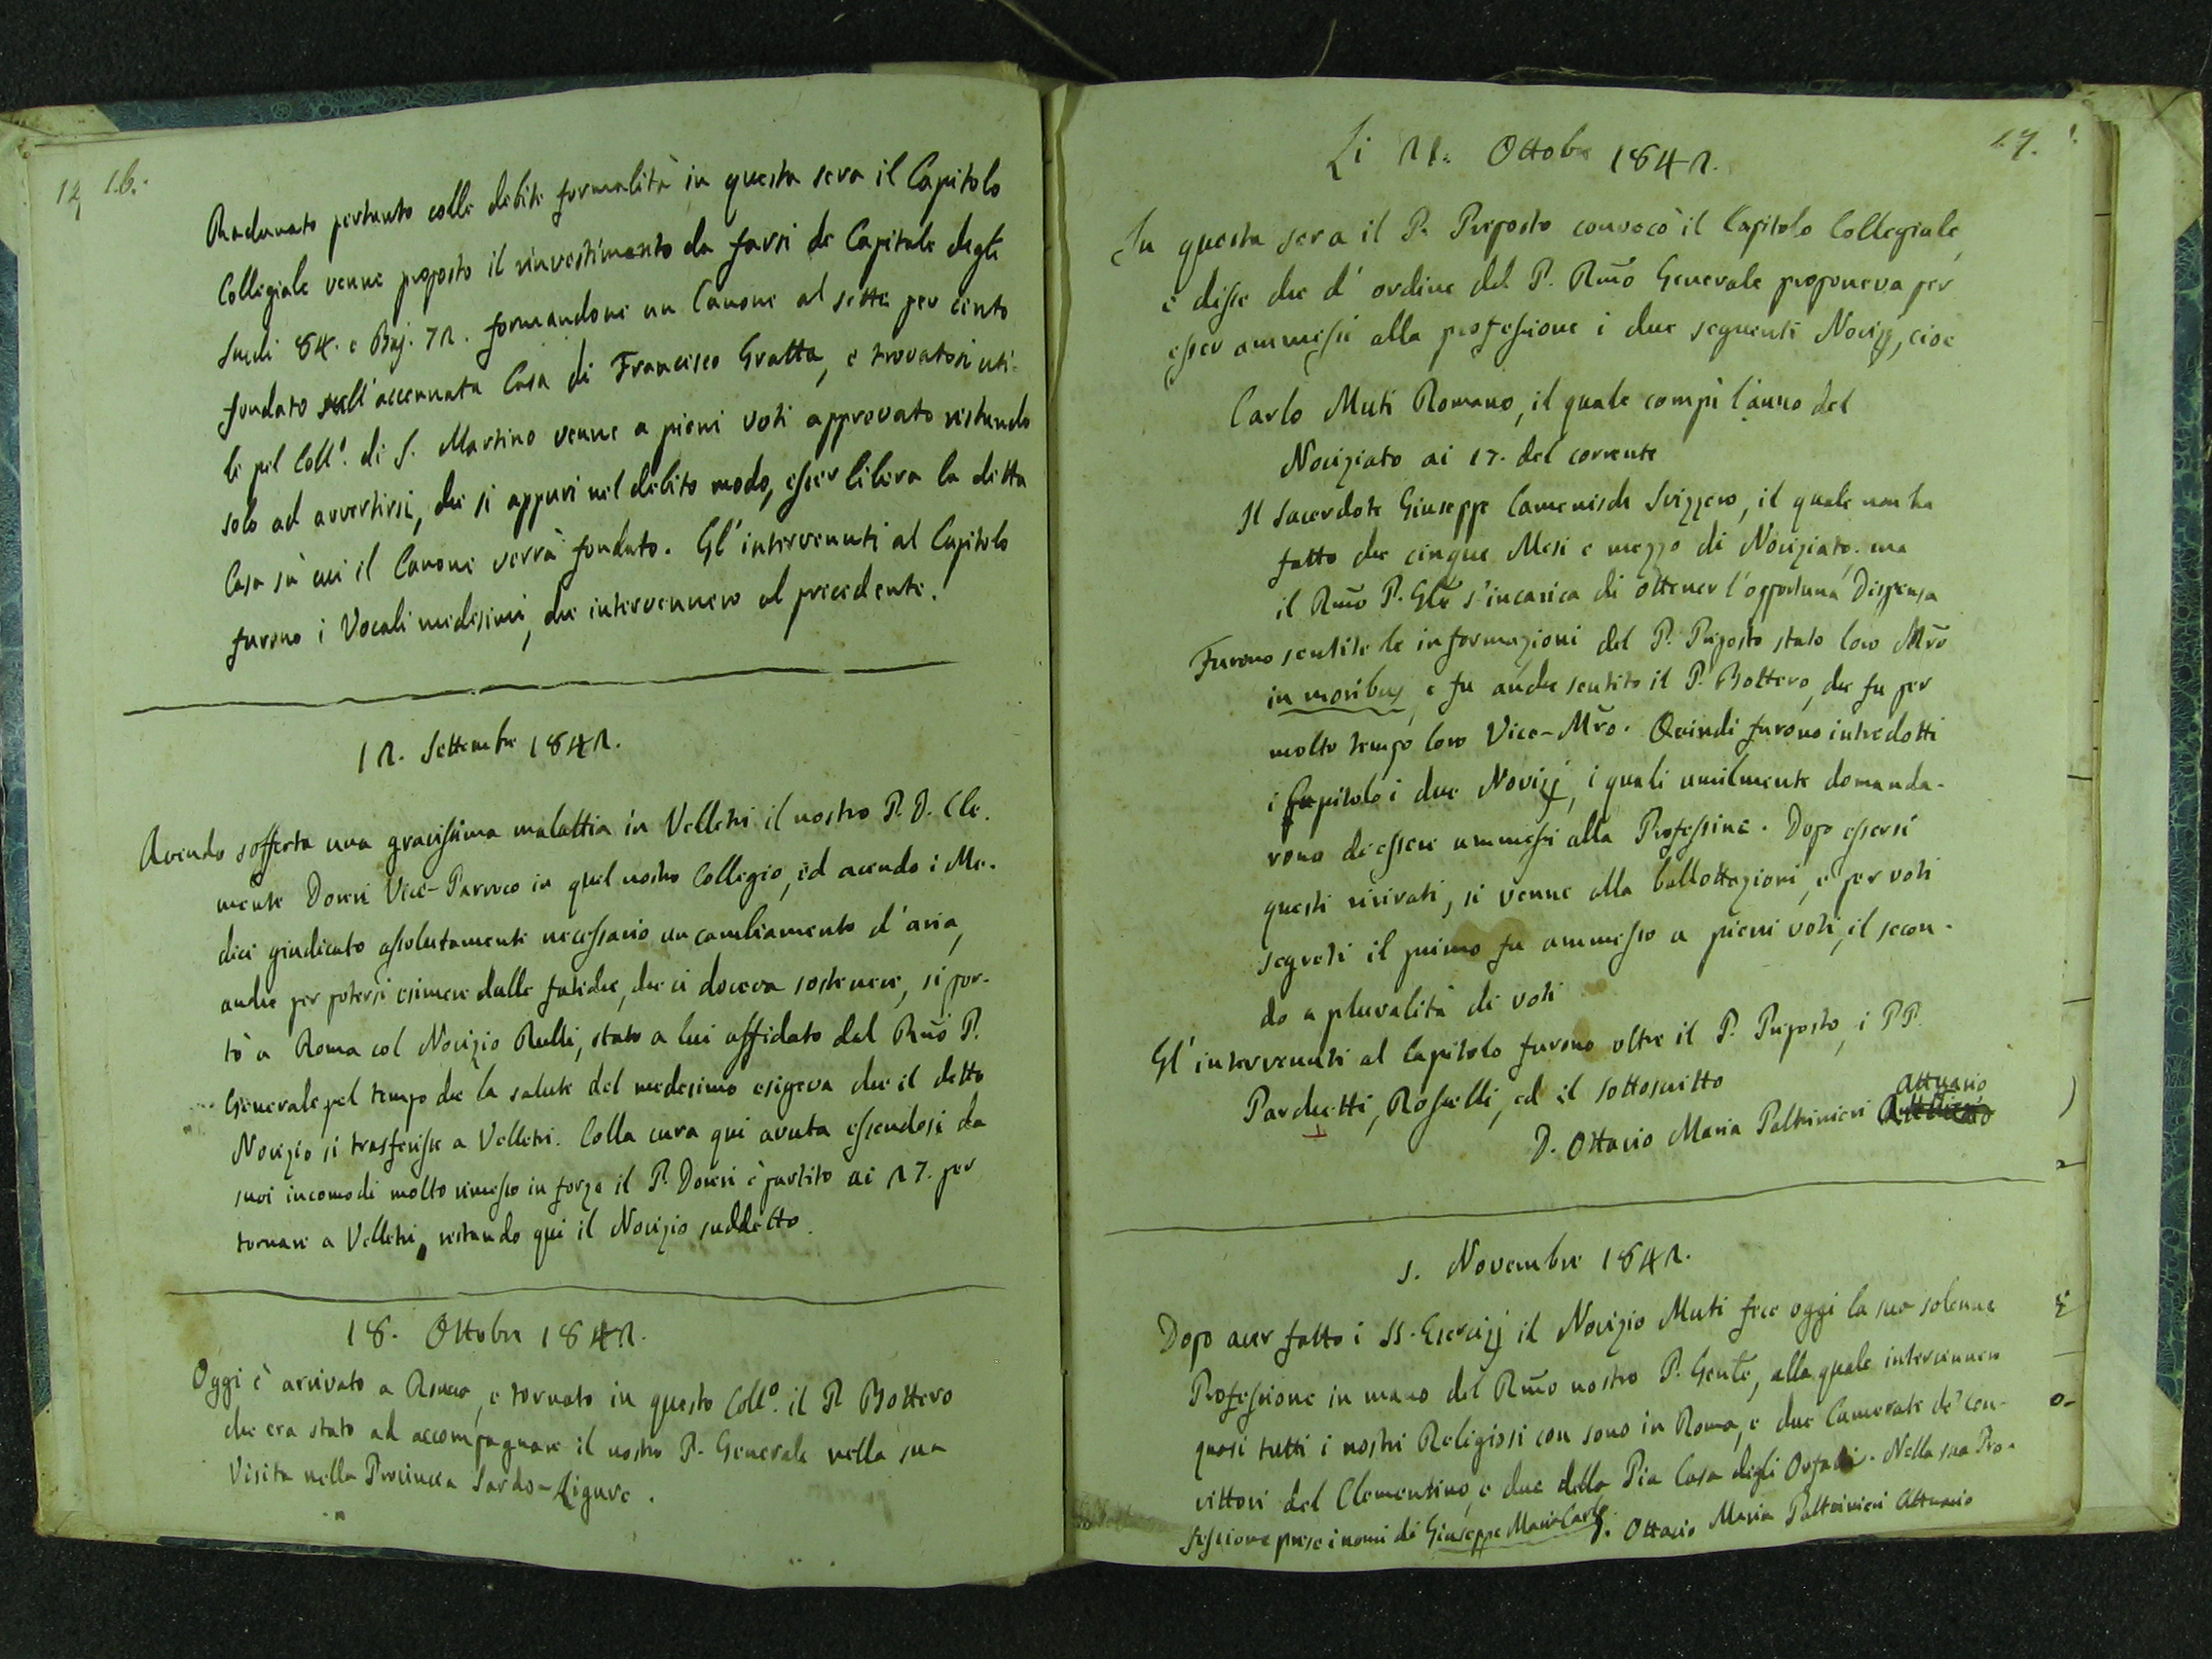 16.
Radunato pertanto colle debite formalità in questa sera il Capitolo
Collegiale venne proposto il rinvestimento da farsi de Capitale degli
Scudi 84. e Baj. 72. formandone un Canone al sette per cento
fondato sull'accennata Casa di Francesco Gratta, e trovatosi uti-
le pel Coll.o di S. Martino venne a pieni voti approvato restando
solo ad avvertirsi, che si appuri nel debito modo, esser libera la detta
Casa sù cui il Canone verrà fondato. Gl'intervenuti al Capitolo
furono i Vocali medesimi, che intervennero al precedente.
12. Settembre 1842.
Avendo sofferta una gravissima malattia in Velletri il nostro P. D. Cle-
mente Doresi Vice-Parroco in quel nostro Collegio, ed avendo i Me-
dici giudicato assolutamente necessario un cambiamento d'aria,
anche per potersi esimere dalle fatiche, che ei doveva sostenere, si por-
tò a Roma col Novizio Rulli, stato a lui affidato dal Rm̃o P.
Generale pel tempo che la salute del medesimo esigeva che il detto
Novizio si trasferisse a Velletri. Colla cura qui avuta essendosi da
suoi incomodi molto rimesso in forze il P. Doresi è partito ai 27. per
tornare a Velletri, restando qui il Novizio suddetto.
18. Ottobre 1842.
Oggi è arrivato a Roma, e tornato in questo Coll.o il P. Bottero
che era stato ad accompagnare il nostro P. Generale nella sua
Visita nella Provincia Sardo-Ligure.
17.
Li 21. Ottobre 1842.
In questa sera il P. Preposto convocò il Capitolo Collegiale,
e disse che d'ordine del P. Rm̃o Generale proponeva per
esser ammessi alla professione i due seguenti Novizj, cioe
Carlo Muti Romano, il quale compì l'anno del
Noviziato ai 17. del corrente
Il Sacerdote Giuseppe Camenisch Svizzero, il quale non ha
fatto che cinque Mesi e mezzo di Noviziato. ma
il Rm̃o P. Gl̃e s'incarica di ottener l'opportuna Dispensa
Furono sentite le informazioni del P. Preposto stato loro Mr̃o
in moribus, e fu anche sentito il P. Bottero, che fu per
molto tempo loro Vice-Mr̃o. Quindi furono introdotti
i Capitolo i due Novizj, i quali umilmente domanda-
rono di essere ammessi alla Professine. Dopo essersi
questi ririrati, si venne alla ballottazioni, e per voti
segreti il primo fu ammesso a pieni voti, il secon-
do a pluralità di voti
Gl'intervenuti al Capitolo furono oltre il P. Preposto, i PP.
Parchetti, Rosselli, ed il sottoscritto
D. Ottavio Maria Paltrinieri Attuario
1. Novembre 1842.
Dopo aver fatto i SS. Esercizj il Novizio Muti fece oggi la sua solenne
Professione in mano del Rm̃o nostro P. Genl̃e, alla quale intervennero
quasi tutti i nostri Religiosi con sono in Roma, e due Camerate de' con-
vittori del Clementino, e due della Pia Casa degli Orfani. Nella sua Pro-
fessione prese i nomi di Giuseppe Maria Carlo.
D. Ottavio Maria Paltrinieri Attuario